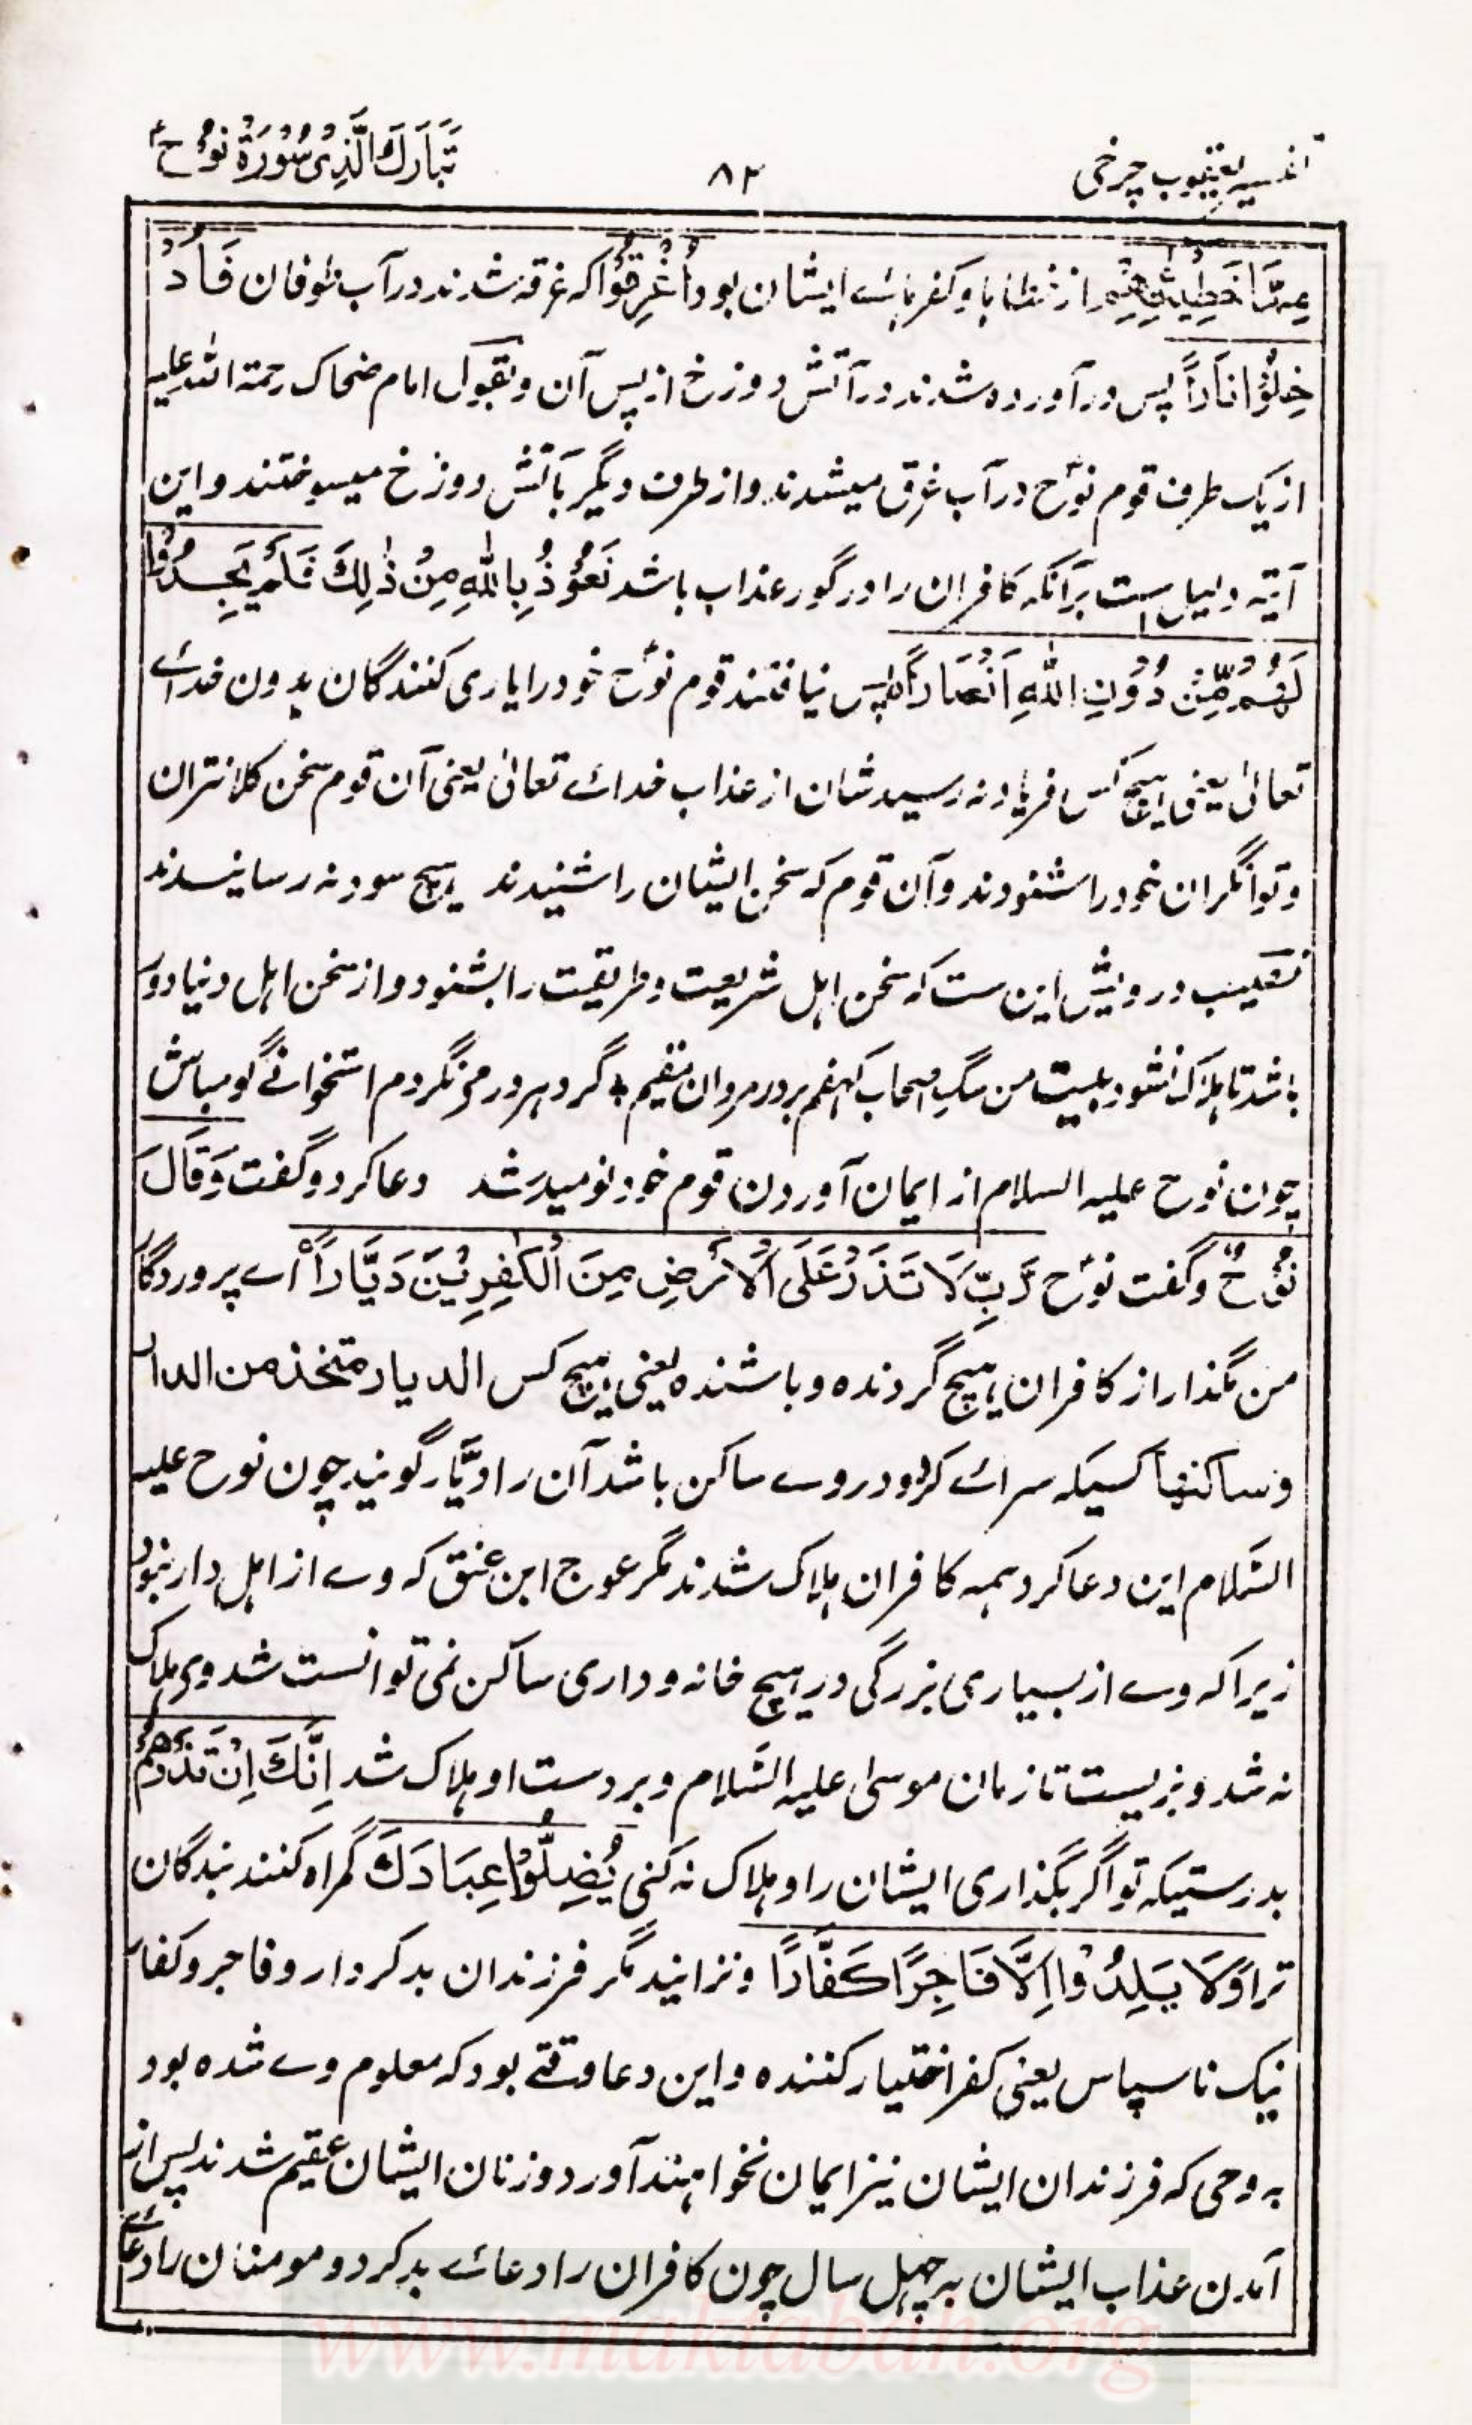 تفسیر یعقوب چرخی
۸۲
تَبَارَكَ الَّذِیْ سُوْرَةُ نُوْح
مِمَّا خَطِيْٓئٰتِهِمْ از خطاها و کفرہائے ایشان بود اُغْرِقُوْا کہ غرقہ شدند در آب طوفان فَاُدْ
خِلُوْا نَارًا پس در آوردہ شدند در آتش دوزخ از پس آن و بقول امام ضحاک رحمتہ اللہ علیہ
از یک طرف قوم نوح در آب غرق میشدند و از طرف دیگر بآتش دوزخ میسوختند و این
آیتہ دلیل است برآنکہ کافران را در گور عذاب باشد نَعُوْذُ بِاللّٰهِ مِنْ ذٰلِكَ فَلَمْ يَجِدُوْا
لَهُمْ مِّنْ دُوْنِ اللّٰهِ اَنْصَارًا پس نیافتند قوم نوح خود را یاری کنندگان بدون خدائے
تعالیٰ یعنی ہیچ کس فریاد نہ رسید شان از عذاب خدائے تعالیٰ یعنی آن قوم سخن کلانتران
و توانگران خود را شنودند و آن قوم کہ سخن ایشان را شنیدند ہیچ سود نہ رسانیدند
نصیب درویش این ست کہ سخن اہل شریعت و طریقت را بشنود و از سخن اہل دنیا دور
باشد تا ہلاک نشود بیت من سگ اصحاب کہفم بر در مردان مقیم ٭ گرد ہر در می نگردم استخوانے گو مباش
چون نوح علیہ السلام از ایمان آوردن قوم خود نومید شد دعا کرد و گفت وَقَالَ
نُوْحٌ و گفت نوح رَّبِّ لَا تَذَرْ عَلَى الْاَرْضِ مِنَ الْكٰفِرِيْنَ دَيَّارًا اے پروردگار
من مگذار از کافران ہیچ گردندہ و باشندہ یعنی ہیچ کس الدیار متخذ من الدار
و ساکنہا کسیکہ سرائے کرد و در وے ساکن باشد آن را دیَّار گویند چون نوح علیہ
السَّلام این دعا کرد ہمہ کافران ہلاک شدند مگر عوج ابن عنق کہ وے از اہل دار نبود
زیرا کہ وے از بسیاری بزرگی در ہیچ خانہ و داری ساکن نمی توانست شد وی ہلاک
نہ شد و بزیست تا زمان موسیٰ علیہ السَّلام و بر دست او ہلاک شد اِنَّكَ اِنْ تَذَرْهُمْ
بدرستیکہ تو اگر بگذاری ایشان را و ہلاک نہ کنی يُضِلُّوْا عِبَادَكَ گمراہ کنند بندگان
ترا وَلَا يَلِدُوْا اِلَّا فَاجِرًا كَفَّارًا و نزایند مگر فرزندان بدکردار و فاجر و کفار
نیک ناسپاس یعنی کفر اختیار کنندہ و این دعا وقتے بود کہ معلوم وے شدہ بود
بہ وحی کہ فرزندان ایشان نیز ایمان نخواہند آورد و زنان ایشان عقیم شدند پس از
آمدن عذاب ایشان بہ چہل سال چون کافران را دعائے بد کرد و مومنان را دعائے
www.maktabah.org